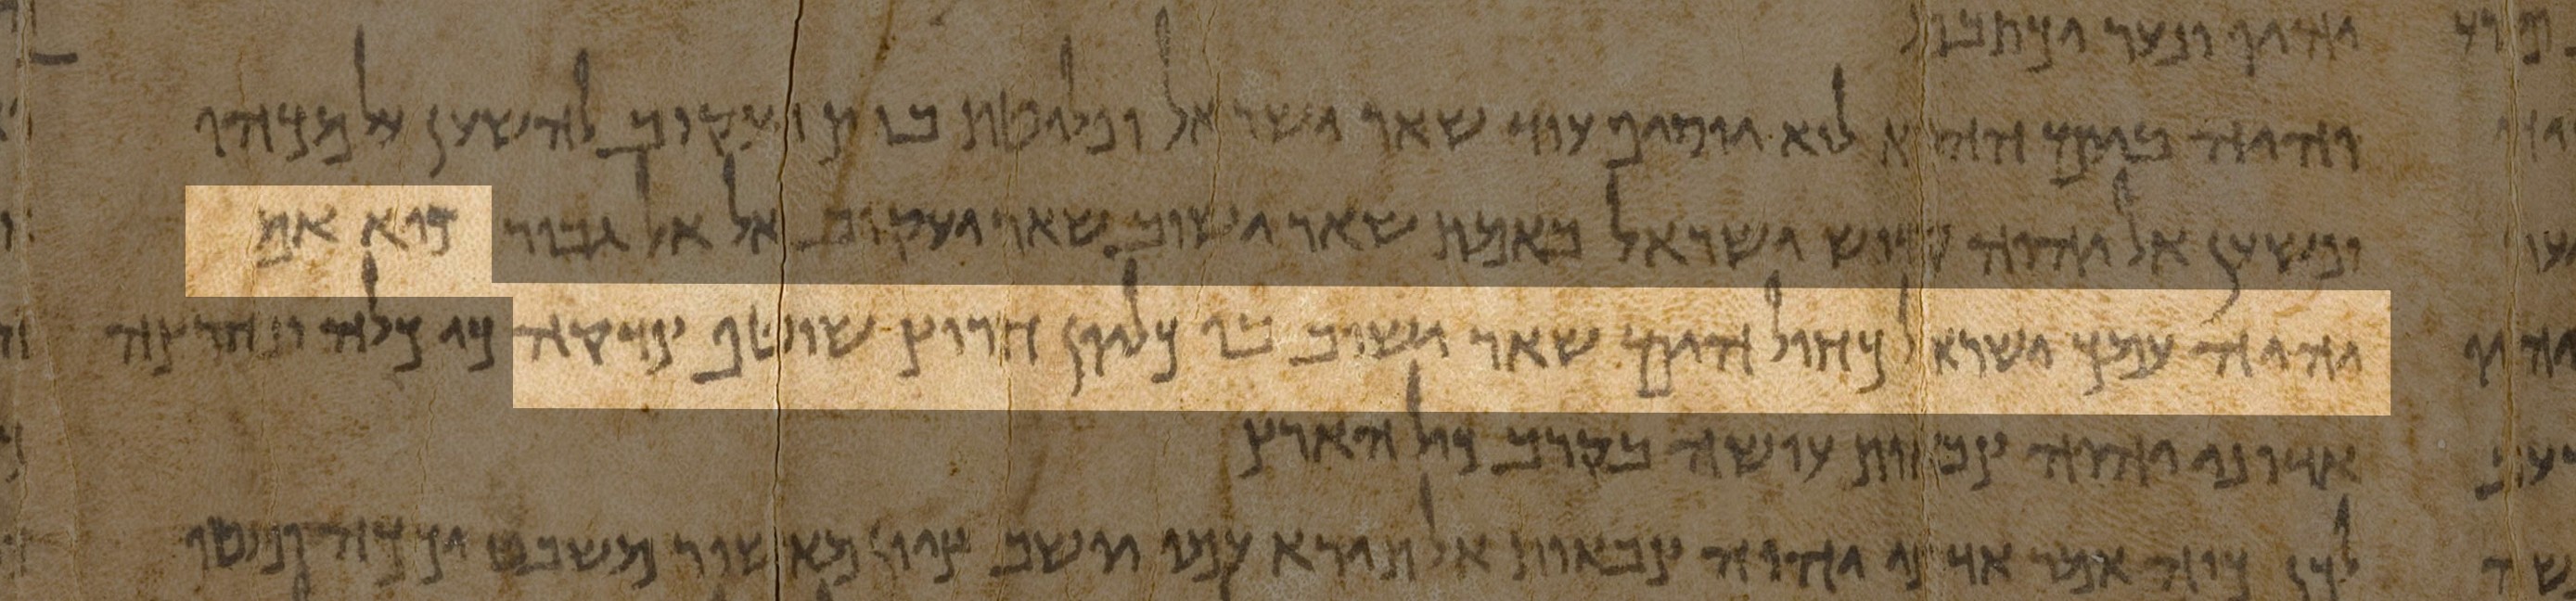 יהיו ונער יכתבם
והיה ביום ההוא לוא יוסיף עוד שאר ישראל ופליטת בית יעקוב להשען על מכהו
ונשען אל יהוה קדוש ישראל באמת שאר ישוב שאר יעקוב אל אל גבור כיא אם
יהיה עמך ישראל כחול הים שאר ישוב בו כליון חרוץ שוטף צדקה כי כלה ונחרצה
אדוני יהוה צבאות עושה בקרב כול הארץ
לכן כוה אמר אדוני יהוה צבאות אל תירא עמי יושב ציון מאשור